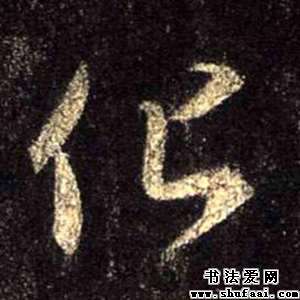 低
书法爱网
www.shufaai.com